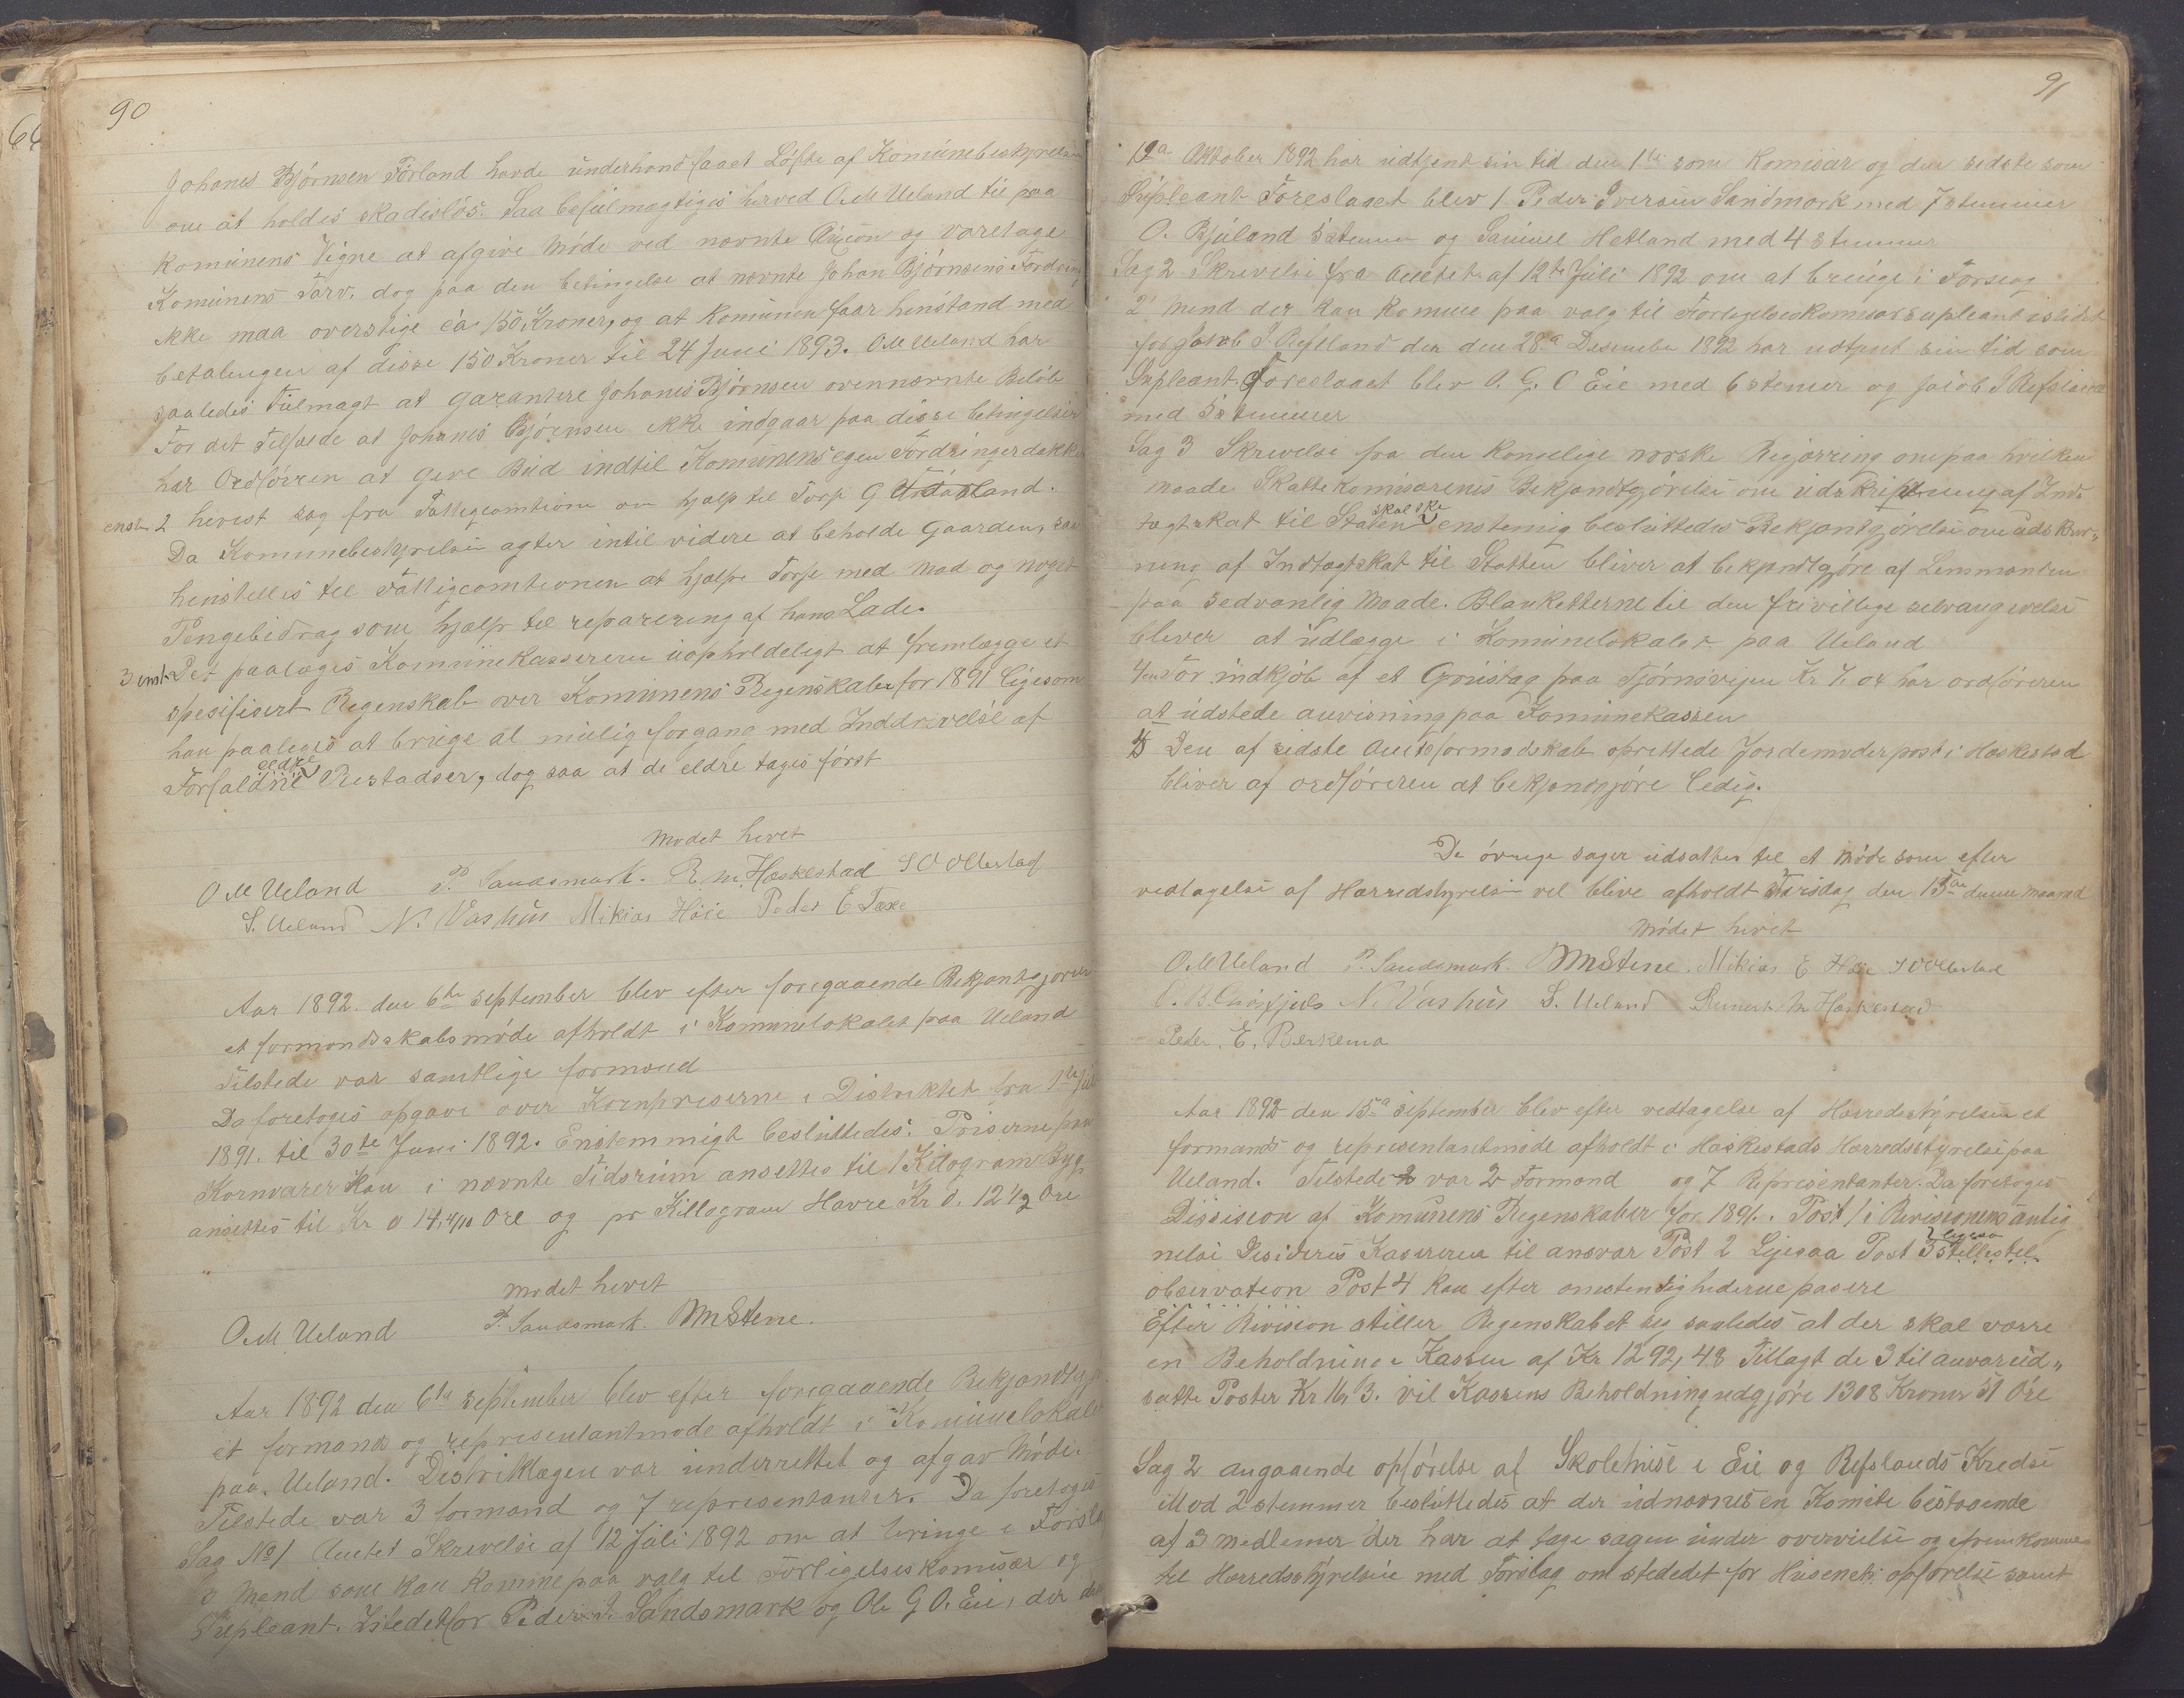 90
Johanes Bjórnsen Fórland havde underhand faaet Lófte af Komúnebestyrelsen
om at holdes skadislós. Saa befúlmegtiges herved O. M. Ueland til paa
Komúnens Vigne at afgive Móde ved nevnte Aúxion og varetage
Komúnens Tarv. dog paa den betingelse at nevnte Johan Bjórnsens Fordring
ikke maa overstige ca 150 Kroner, og at Komúnen faar henstand med
betalingen af disse 150 Kroner til 24 Juni 1893. O M Ueland har
saaledes Fúlmagt at garantere Johanes Bjórnsen ovennevnte Beløb
For det Tilfælde at Johanes Bjórnsen ikke indgaar paa disse betingelser
har Ordfóreren at give Búd indtil Komúnens egen Fordringer dekkes
enst. 2 hevest sag fra Fattigcomtionen om hjælp til Torje G
Da Komúnebestyrelsen agter intil videre at beholde Gaarden, saa
henstilles til Fattigcomtionen at hjælpe Torje med Mad og noget
Pengebidrag som hjælp til reparering af hans Lade.
3 enst. Det paaleges Komúnekassereren úopholdeligt at fremlægge et
spesifisert Regenskab over Komúnens Regenskaber for 1891 ligesom
han paaleges at brúge al múlig forgang med Inddrivelse af
eldre
Forfaldne Restadser, dog saa at de eldre tages fórst
Modet hevet
O M Ueland P. Sandsmark. R. M. Hæskestad S O Ollestad
S. Ueland N. Vashús Mikias Hóie Peder E
Aar 1892. den 6te september blev efter foregaaende Bekjantgjorelse
et formondskabsmóde afholdt i Komúnelokalet paa Ueland
Tilstede var samtlige formend
Da foretoges opgave over Kornpriserne i Distriktet fra 1te Júli
1891. til 30te Juni 1892. Enstemmigt beslúttedes: Priserne paa
Kornvarer Kan i nevnte Tidsrúm ansettes til 1 Kilogram Byg
ansettes til Kr 0 14,4/10 Óre og pr Killogram Havre Kr 0. 12 1/2 Óre
Modet hevet
O. M. Ueland P. Sandsmark. M Stene.
Aar 1892 den 6te september blev efter foregaaende Bekjandtgjo
et formands og representantmode afholdt i Komúnelokalet
paa Ueland. Distriktlægen var únderrettet og afgav Móde.
Tilstede var 3 formand og 7 representanter. Da foretoges
Sag No 1 Amtets Skrivelse af 12 Júli 1892 om at bringe i Forslag
3 Mand som kan komme paa valg til Forligelseskomisær og
Súpleant. Istedetfor Peder I. Sandsmark og Ole G O. Eie, der den
91
12a Oktober 1892 har udtjent sin tid den 1te som Komisær og den sidste som
Súpleant Foreslaaet blev 1 Peder Iversen Sandsmark med 7 stemmer
O. Bjúland 5 stemmer og Samúel Hetland med 4 stemmer
Sag 2 Skrivelse fra Amtet af 12te Júli 1892 om at bringe i Forslag
2 mend der kan komme paa valg til Forligelseskomisærsúpleant istedet
for Jakob I. Refsland der den 28a Desember 1892 har udtjent sin tid som
Súpleant. Foreslaaet blev O. G. O Eie med 6 stemer og Jacob I Refsland
med 5 stemmer
Sag 3 Skrivelse fra den Kongelige norske Regjerring om paa hvilken
maade Skattekomisærenes Bekjandtgjórelse om údskrivning af Ind-
skal ske
tægtskat til Staten enstemig beslúttedes Bekjantgjórelse om údskriv-
ning af Indtægtskat til Statten bliver at bekjendtgjóre af Lensmanden
paa sedvanlig Maade. Blanketterne til den frivillige selvangivelse
bliver at údlægge i Komúnelokalet paa Ueland
4. For indkjób af et Grústag paa Tjórnsvejen Kr 7,04 har ordfóreren
at údstede anvisning paa Komúnekassen
5 Den af sidste Amtsformandskab oprettede Jordemoderpost i Heskestad
bliver af ordfóreren at bekjendtgjóre ledig.
De óvrige sager údsattes til et Móde som efter
vedtagelse af Herredsstyrelsen vil blive afholdt Torsdag den 15de denne maaned
Módet hevet
O. M Ueland P. Sandsmark. M Stene. Mikias E Hóie S O Ollestad
N. Vashús S. Ueland Reinert M Heskestad
Peder. E.
Aar 1892 den 15a september blev efter vedtagelse af Herredsstyrelsen et
formands og representantmóde afholdt i Heskestads Herredsstyrelse paa
Ueland. Tilstede var 2 Formand og 7 Representanter. Da foretoges
Dissision af Komúnens Regenskaber for 1891. Post 1 i Revisionens antig
nelse Desideres Kasereren til ansvar Post 2 Ligesaa Post 3 stilles til
ligesaa
observation Post 4 kan efter omstendighederne pasere
Efter Revision stiller Regenskabet sig saaledes at der skal være
en Beholdning i Kassen af Kr 1292,48 Tillagt de 3 til ansvar úd-
satte Poster Kr 16,3. vil Kassens Beholdning udgjóre 1308 Kroner 51 Óre
Sag 2 angaaende opfórelse af Skolehúse i Eie og Refslands Kredse
Mod 2 stemmer beslúttedes at der údnevnes en Komite bestaaende
af 3 medlemer der har at tage sagen únder overveielse og fremkomme
til Herredsstyrelsen med Forslag om stededet for Húsenes opfórelse samt